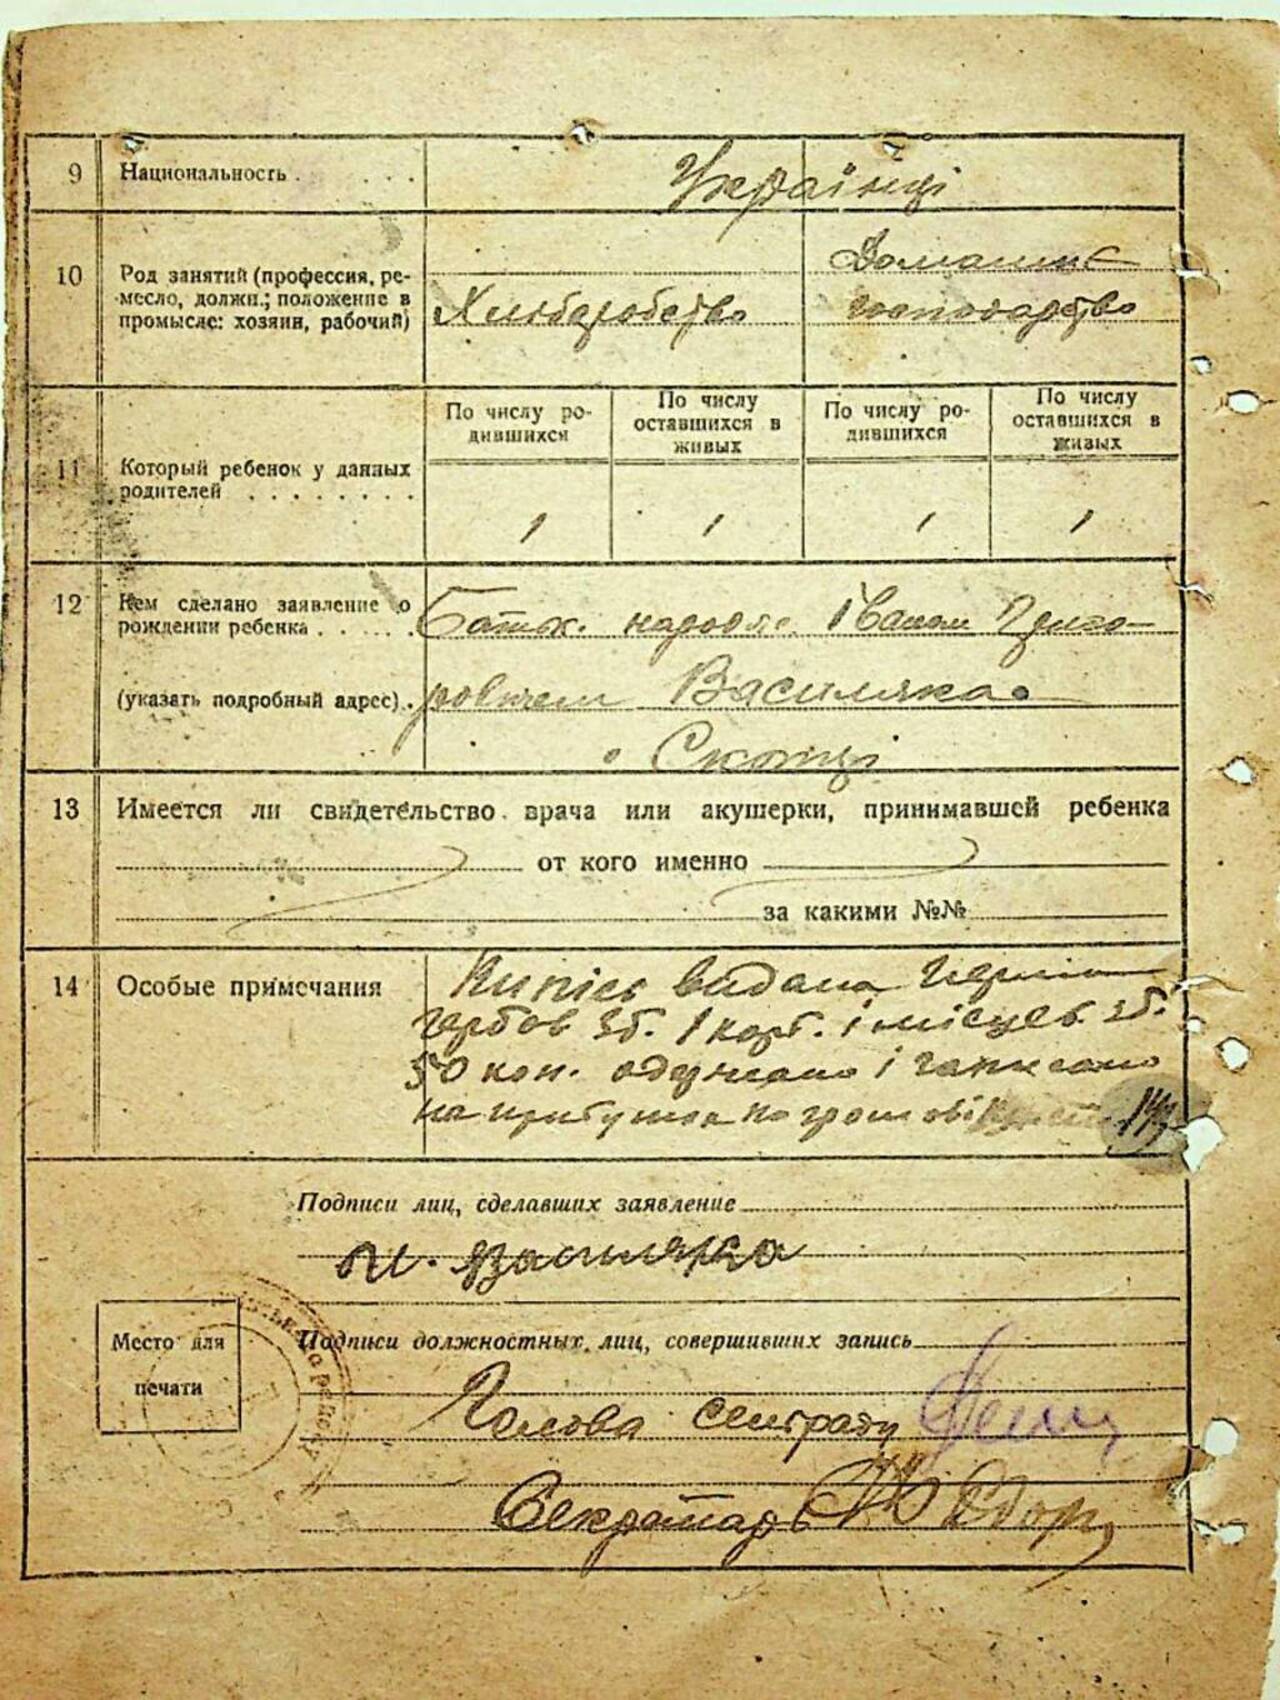 9 Национальность . . . . Українці
10 Род занятий (профессия, ре-
месло, должн.; положение в
промысле: хозяин, рабочий)
Хліборобство
Домашнє
господарство
11 Который ребенок у данных
родителей . . . . . . . .
По числу ро-
дившихся
По числу
оставшихся в
живых
По числу ро-
дившихся
По числу
оставшихся в
живых
1 1 1 1
12 Кем сделано заявление о
рождении ребенка . . . . . Батьк. народж. Іваном Григо-
(указать подробный адрес) . ровичем Василяка
Скотці
13 Имеется ли свидетельство врача или акушерки, принимавшей ребенка
от кого именно
за какими №№
14 Особые примечания
видана
гербов зб. 1 карб. і місцев. зб.
50 коп. одержано і записано
на прибуток по грошовій
Подписи лиц, сделавших заявление
И. Василяка
Место для
печати
Подписи должностных лиц, совершивших запись
Голова сельради
Секретарь